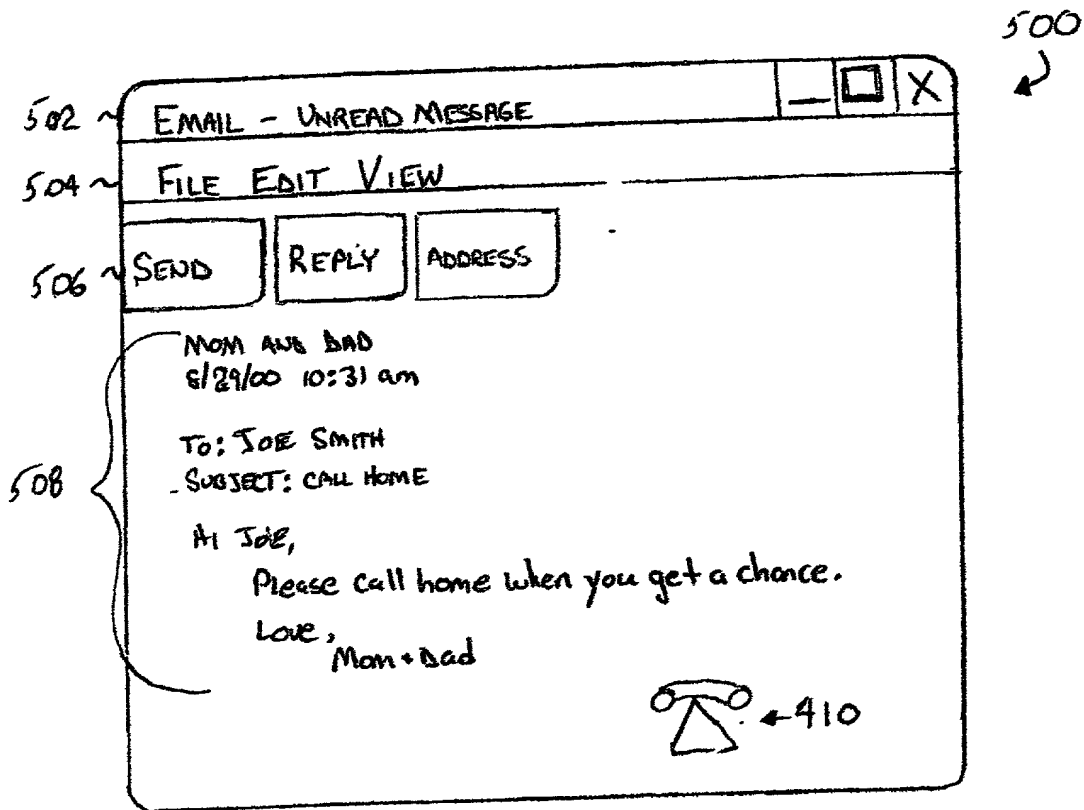 500
502 EMAIL - UNREAD MESSAGE X
504 FILE EDIT VIEW
506 SEND REPLY ADDRESS
MOM AND DAD
8/29/00 10:31 am
TO: JOE SMITH
508 SUBJECT: CALL HOME
HI JOE,
Please call home when you get a chance.
Love,
Mom + Dad
410